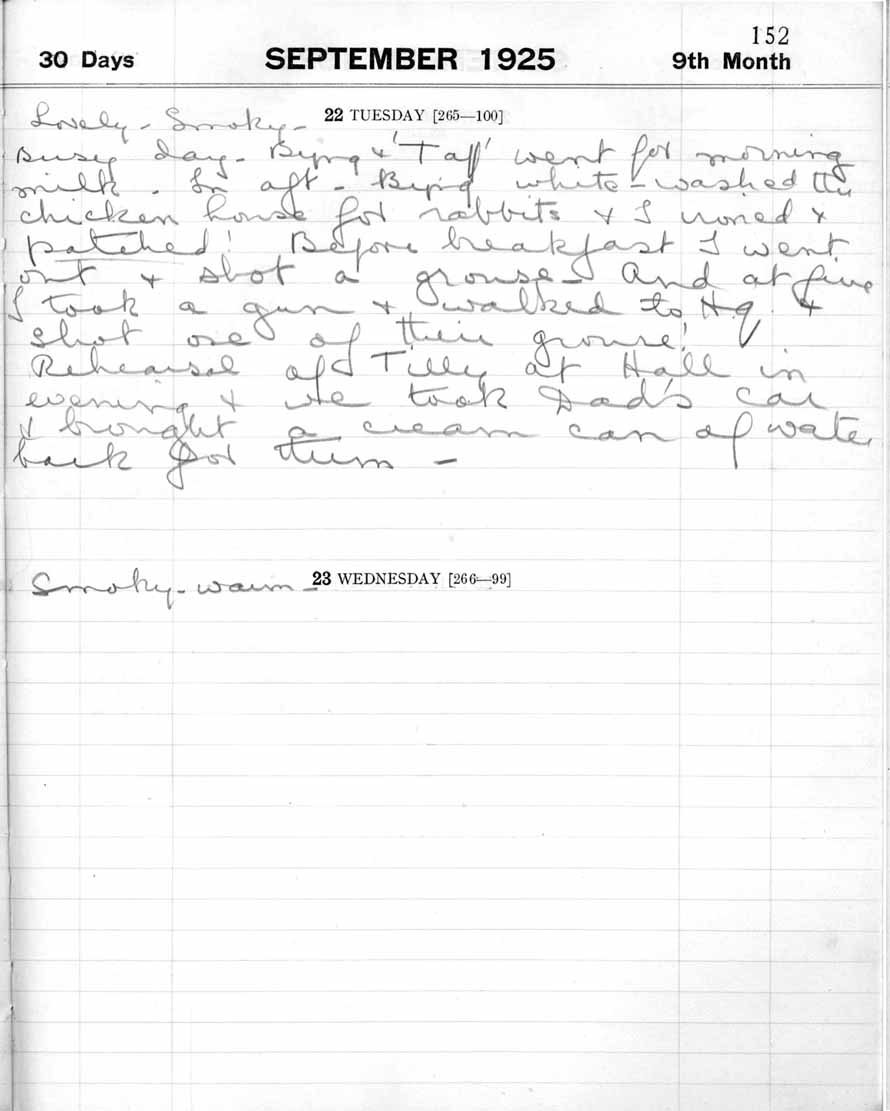 152
30 Days SEPTEMBER 1925 9th Month
Lovely - Smoky - 22 TUESDAY [265—100]
Busy day - Byng & 'Taff' went for morning
milk - In aft - Byng white-washed the
chicken house for rabbits & I ironed &
patched! Before breakfast I went
out & shot a grouse - And at five
I took a gun & walked to Hq. &
shot one of their grouse!
Rehearsal of Tilly at Hall in
evening & we took Dad's car
& brought a cream can of water
back for them -
Smoky - warm - 23 WEDNESDAY [266—99]